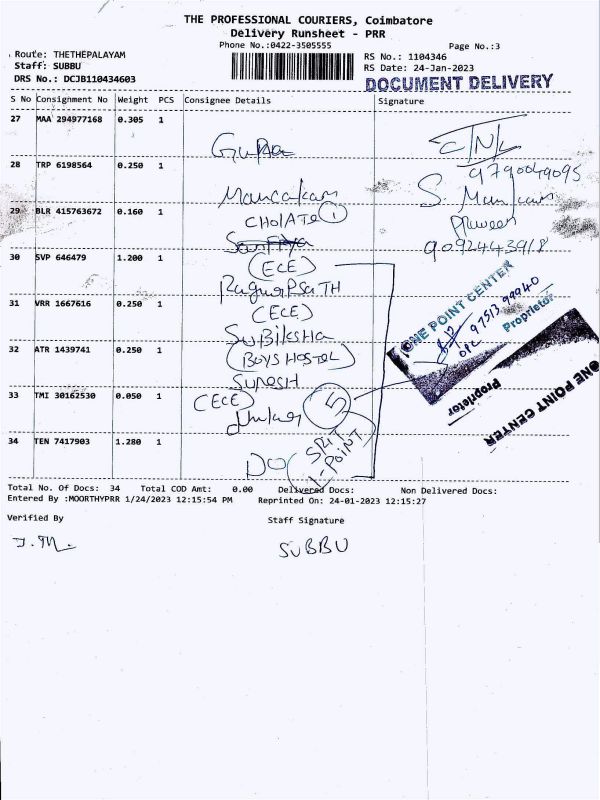 THE PROFESSIONAL COURIERS, Coimbatore
Delivery Runsheet - PRR
Phone No.:0422-3505555
Page No.:3
Route: THETHEPALAYAM
Staff: SUBBU
DRS No.: DCJB110434603
RS No.: 1104346
RS Date: 24-Jan-2023
DOCUMENT DELIVERY
S No Consignment No Weight PCS Consignee Details Signature
27 MAA 294977168 0.305 1
C/N/L
9790049095
28 TRP 6198564 0.250 1
S.
29 BLR 415763672 0.160 1 CHOLATE 1
Praveen
9092443918
30 SVP 646479 1.200 1 (ECE)
31 VRR 1667616 0.250 1 (ECE)
SUBIKSHA
32 ATR 1439741 0.250 1 (BOYS HOSTEL)
SURESH
33 TMI 30162530 0.050 1 (ECE)
5
34 TEN 7417903 1.280 1 DOC
SRIT
1-POINT
ONE POINT CENTER
97513 99940
Proprietor
ONE POINT CENTER
Proprietor
Total No. Of Docs: 34 Total COD Amt: 0.00 Delivered Docs: Non Delivered Docs:
Entered By :MOORTHYPRR 1/24/2023 12:15:54 PM Reprinted On: 24-01-2023 12:15:27
Verified By Staff Signature
SUBBU